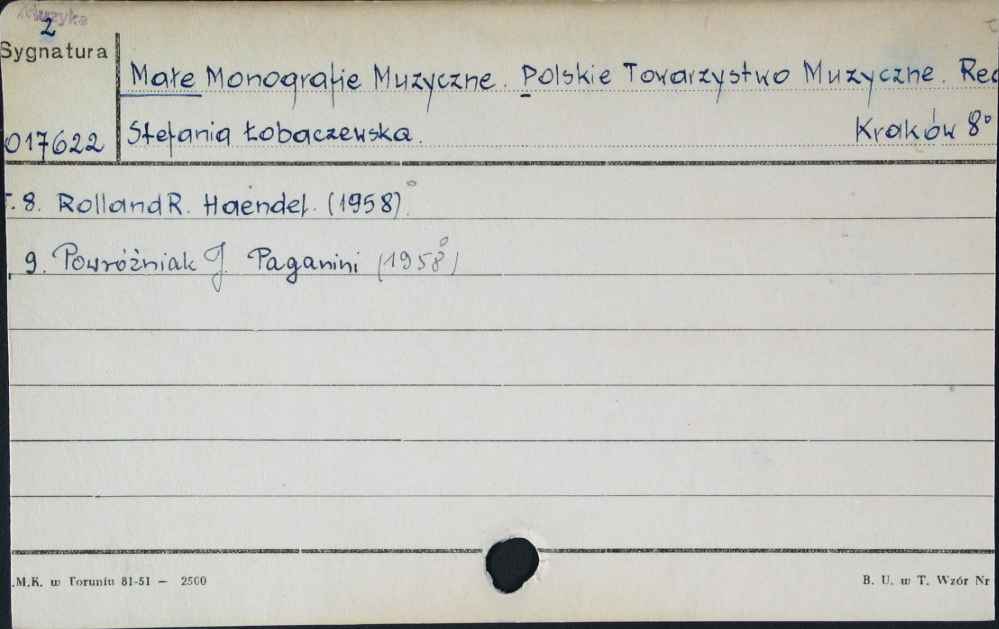 Muzyka
2
Sygnatura
Małe Monografie Muzyczne. Polskie Towarzystwo Muzyczne. Red
017622
Stefania Łobaczewska. Kraków 8°
T. 8. Rolland R. Haendel. (1958)
9. Powróźniak J. Paganini (1958)
.M.K. w Toruniu 81-51 — 2500
B. U. w T. Wzór Nr